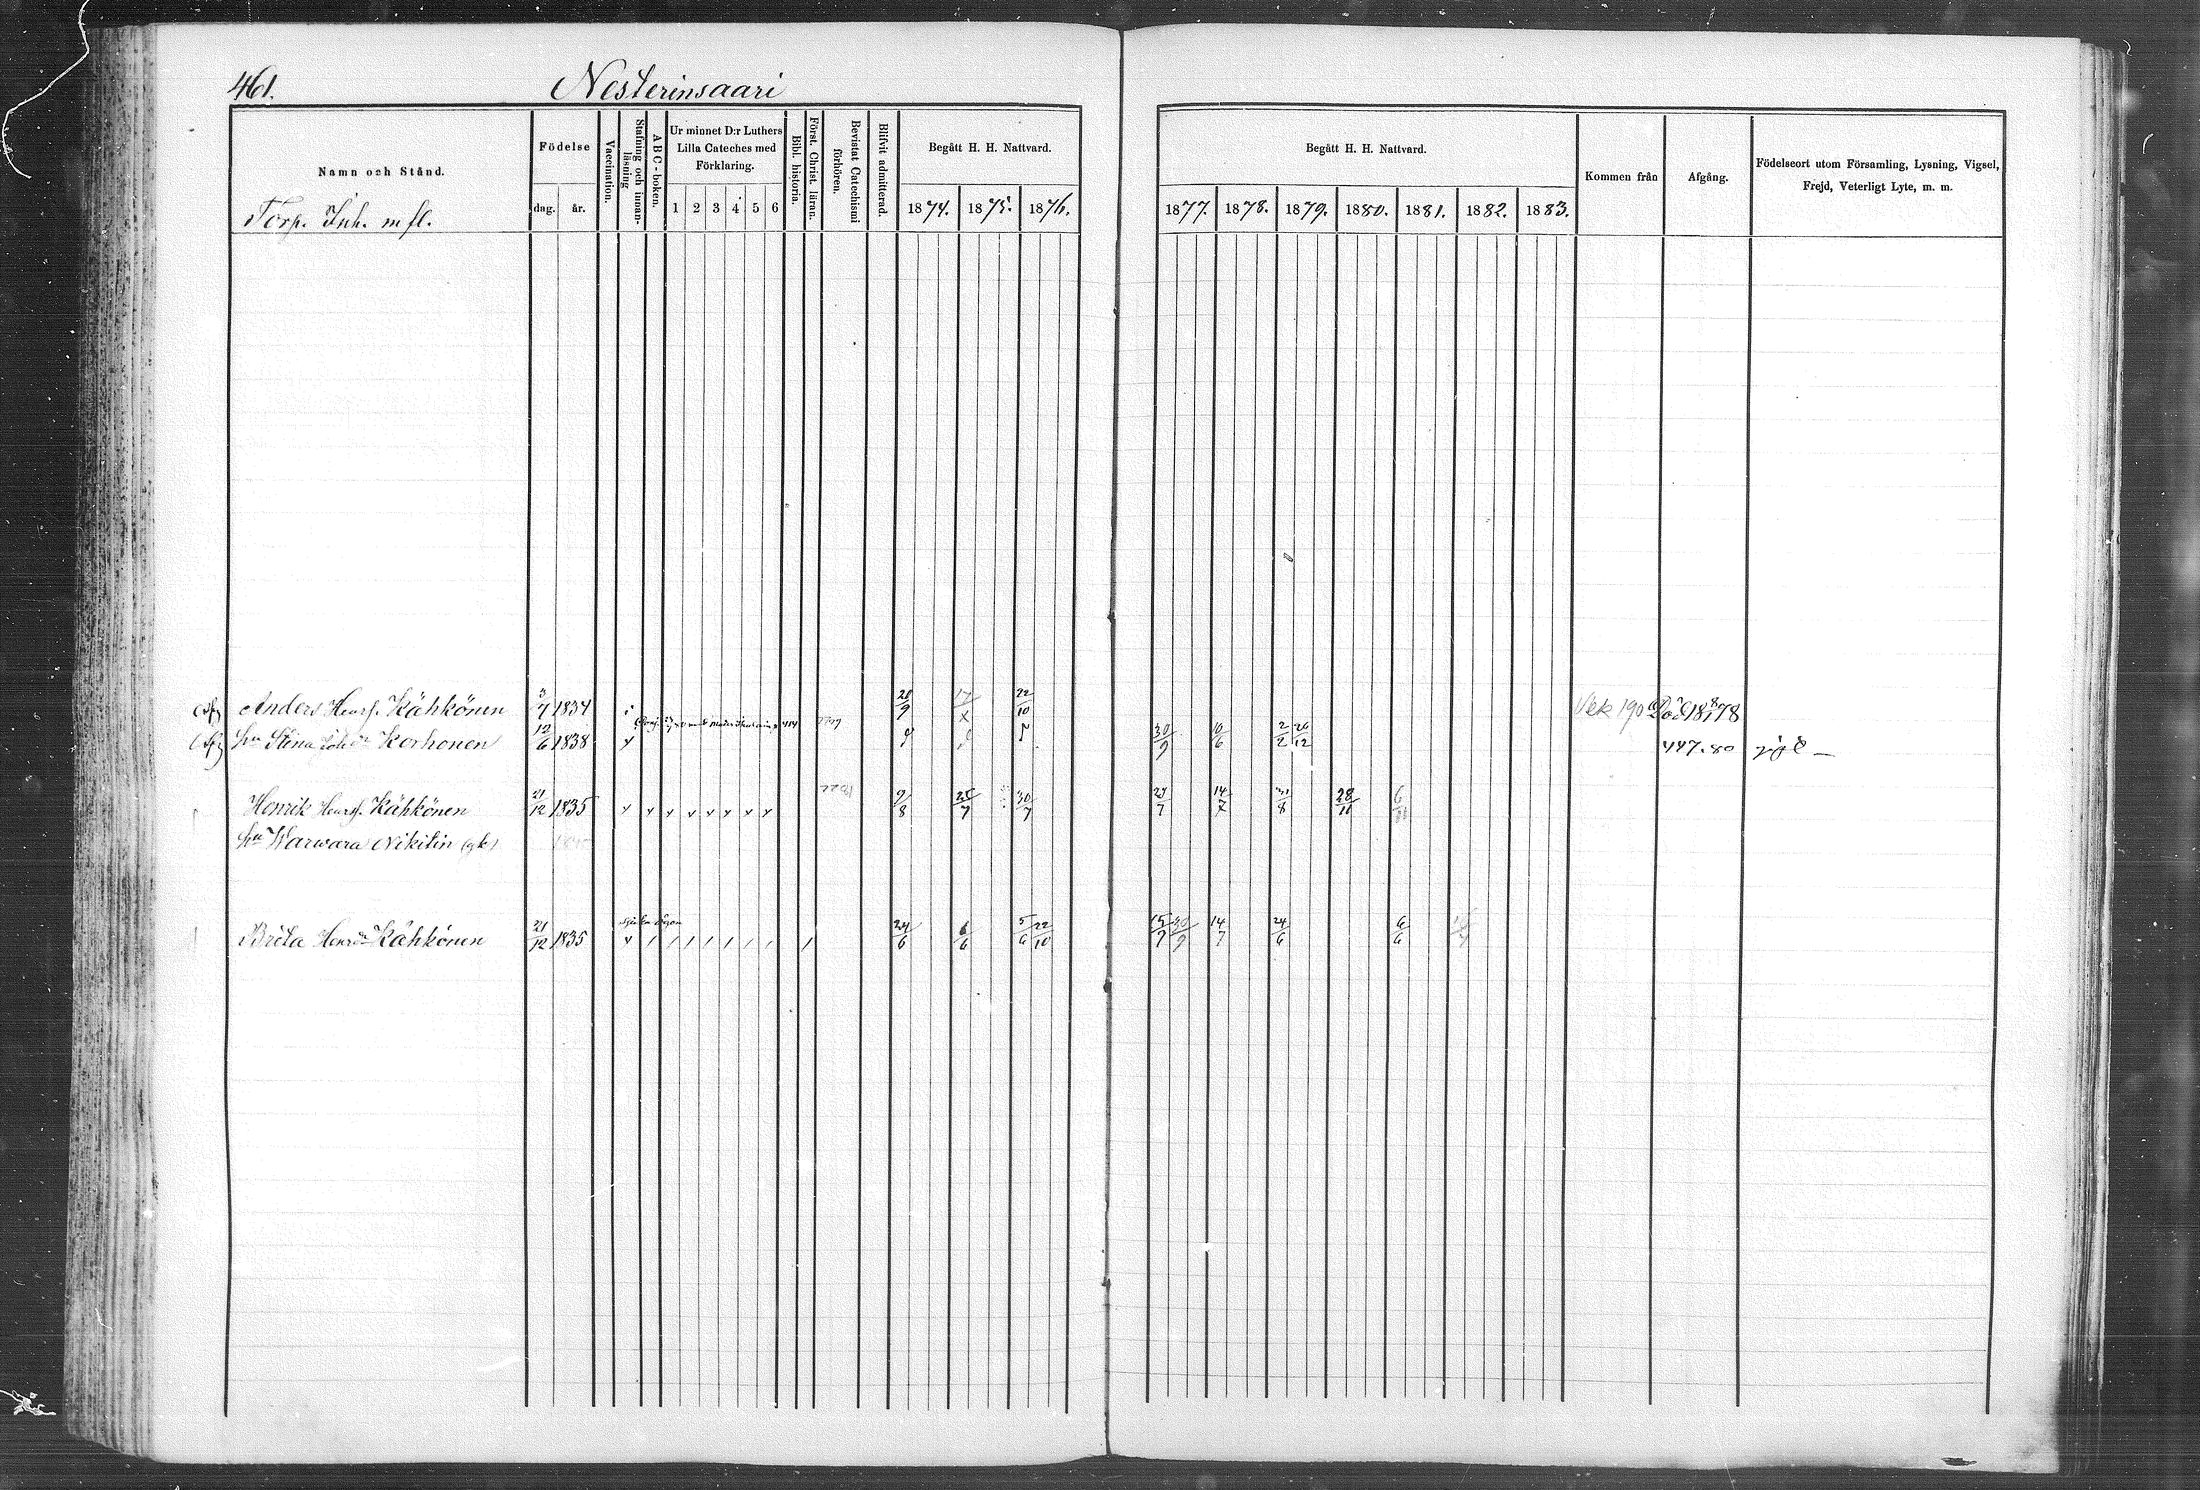 461. Nesterinsaari
Namn och Stånd.
Torp. Inh. m fl.
Födelse
dag. år.
Vaccination.
Stafning och innan-läsning
ABC-boken.
Ur minnet D:r Luthers Lilla Cateches med Förklaring.
1 2 3 4 5 6
Bibl. historia.
Först. Christ. läran.
Bevistat Catechismi förhören.
Blifvit admitterad.
Begått H. H. Nattvard.
1874. 1875. 1876.
Begått H. H. Nattvard.
1877. 1878. 1879. 1880. 1881. 1882. 1883.
Kommen från
Afgång.
Födelseort utom Församling, Lysning, Vigsel, Frejd, Veterligt Lyte, m. m.
Anders Henrs. Kähkönen 3/7 1834 20/9 22/10 Död 18 8/1 78
hu Stina Joh dr Korhonen 12/6 1838 30/9 10/6 2/2 26/12 447.80
Henrik Henrs. Kähkönen 21/12 1835 9/8 25/7 30/7 29/7 14/7 31/8 28/11
hu Warwara Nikitin (gk)
Brita Henrdr Kähkönen 21/12 1835 24/6 6/6 5/6 22/10 15/7 30/9 14/7 24/6 6/6